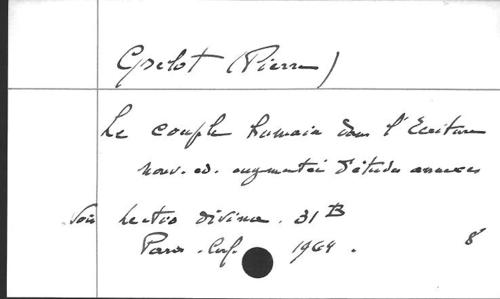 Grelot (Pierre)
Le couple humain dans l'Ecriture
nouv. ed. augmentée d'études annexes
Voir Lectio divina. 31 B
Paris. Cerf. 1964. 8°